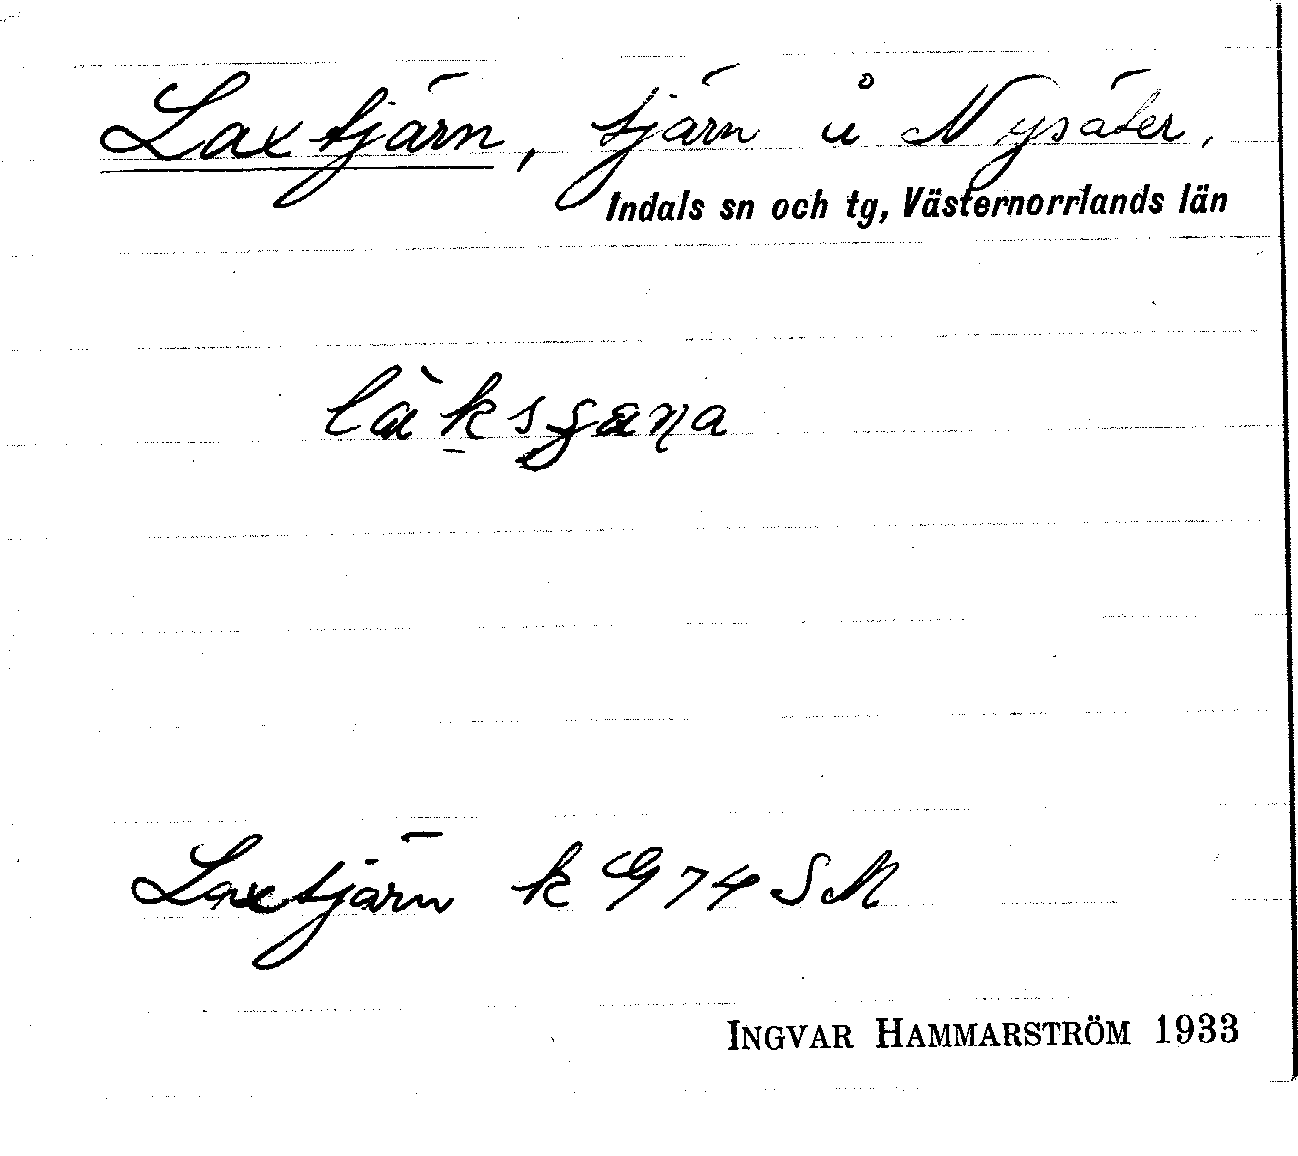 Laxtjärn, tjärn å Nysäter,
Indals sn och tg, Västernorrlands län
Laxtjärn k G 74 SM
INGVAR HAMMARSTRÖM 1933